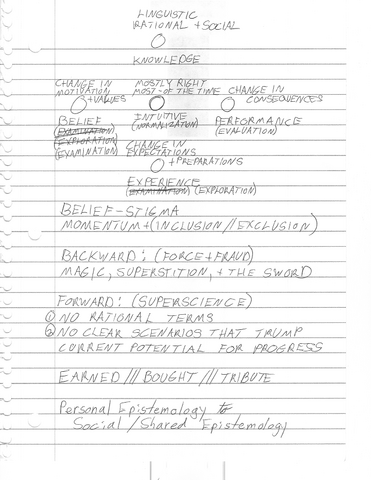 LINGUISTIC
RATIONAL + SOCIAL
KNOWLEDGE
CHANGE IN MOTIVATION + VALUES
MOSTLY RIGHT MOST-OF THE TIME
CHANGE IN CONSEQUENCES
BELIEF
INTUITIVE
(NORMALIZATION)
PERFORMANCE
(EVALUATION)
(EXAMINATION)
EXPLORATION
(EXAMINATION)
CHANGE IN
EXPECTATIONS
+ PREPARATIONS
EXPERIENCE
(EXAMINATION) (EXPLORATION)
BELIEF-STIGMA
MOMENTUM + (INCLUSION//EXCLUSION)
BACKWARD: (FORCE + FRAUD)
MAGIC, SUPERSTITION, + THE SWORD
FORWARD: (SUPERSCIENCE)
① NO RATIONAL TERMS
② NO CLEAR SCENARIOS THAT TRUMP
CURRENT POTENTIAL FOR PROGRESS
EARNED///BOUGHT///TRIBUTE
Personal Epistemology to
Social/Shared Epistemology